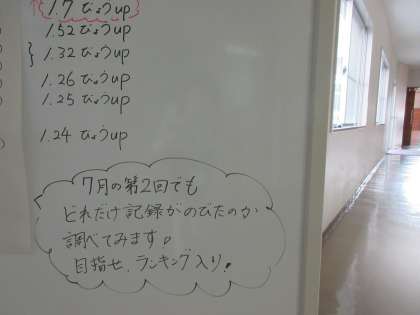 1.7 びょうup
1.52 びょうup
1.32 びょうup
1.26 びょうup
1.25 びょうup
1.24 びょうup
7月の第2回でも
どれだけ記録がのびたのか
調べてみます。
目指せ、ランキング入り!